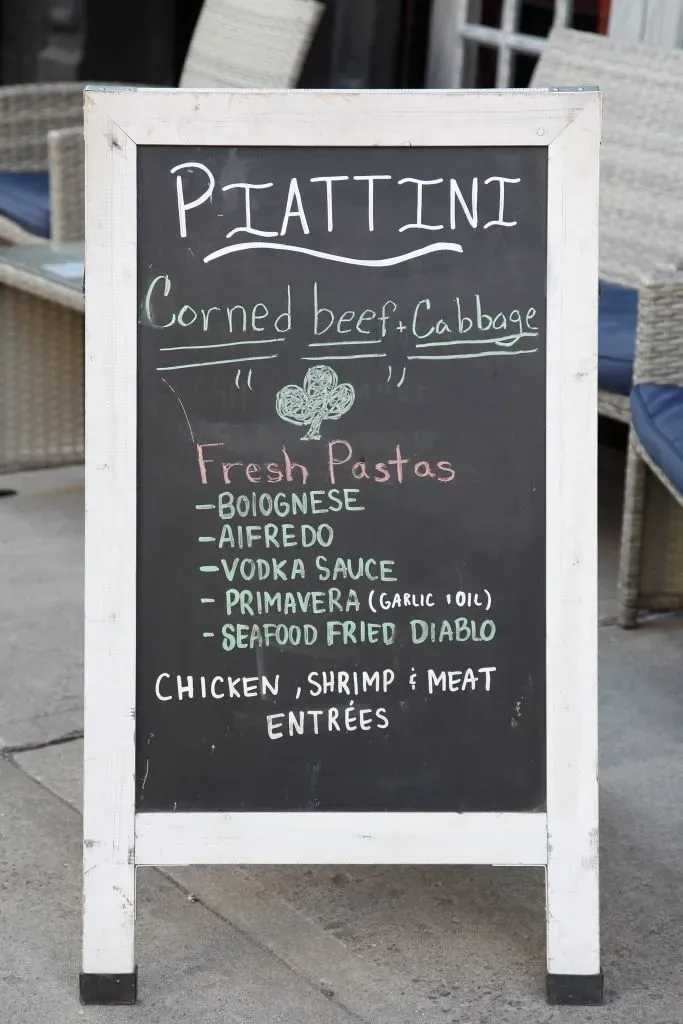 PIATTINI
Corned beef + Cabbage
" "
Fresh Pastas
-BOlOGNESE
-AlFREDO
-VODKA SAUCE
- PRIMAVERA (GARLIC & OIL)
- SEAFOOD FRIED DIABLO
CHICKEN , SHRIMP & MEAT
ENTRÉES